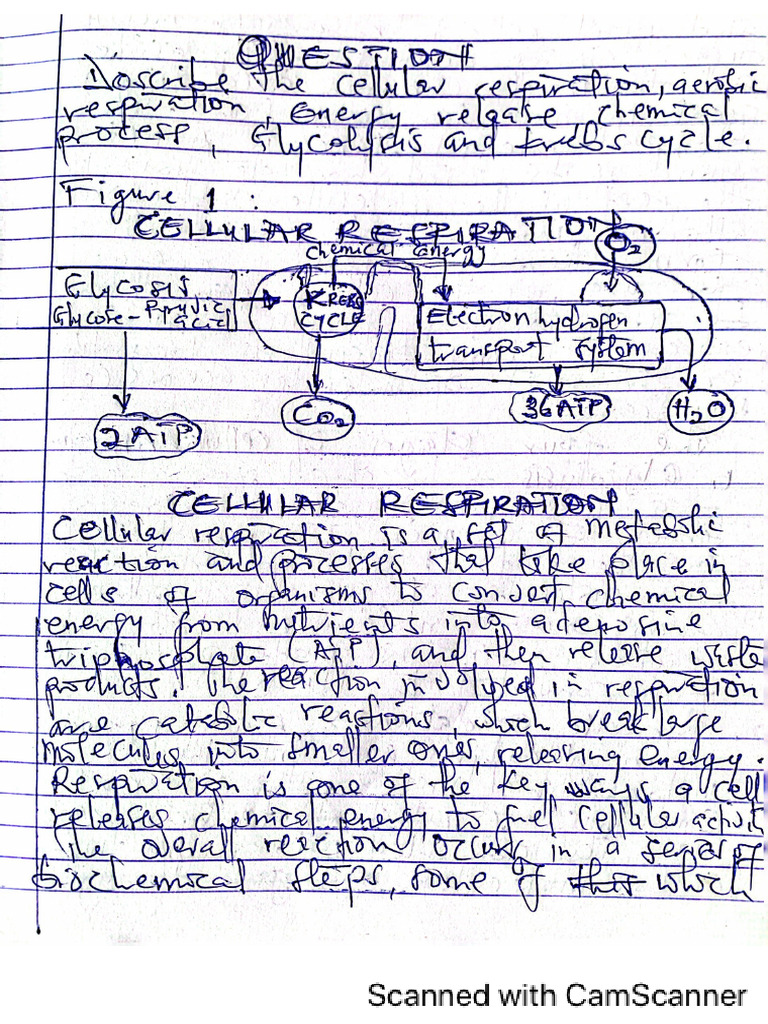 QUESTION
1. Describe the cellular respiration, aerobic
respiration, Energy release, chemical
process, Glycolysis and krebs cycle.
Figure 1 :
CELLULAR RESPIRATION
chemical energy
O2
Glycosis
Glycose - Pyruvic
acid
KREBS
CYCLE
Electron hydrogen
transport system
2 ATP
CO2
36 ATP
H2O
CELLULAR RESPIRATION
Cellular respiration is a set of metabolic
reaction and processes that take place in
cells of organisms to convert chemical
energy from nutrients into adenosine
triphosphate (ATP), and then release waste
products. The reaction involved in respiration
are catabolic reactions, which break large
molecules into smaller ones, releasing energy.
Respiration is one of the key ways a cell
releases chemical energy to fuel cellular activit
The overall reaction occurs in a series of
biochemical steps, some of which
Scanned with CamScanner